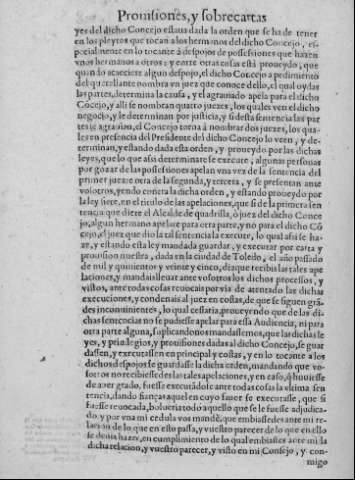 Prouisiones, y sobrecartas
yes del dicho Concejo estaua dada la orden que se ha de tener
en los pleytos que tocan a los hermanos del dicho Concejo, es-
pecialmente en lo tocante à despojos de possessiones que hazen
vnos hermanos a otros: y entre otras cosas está proueydo, que
quando acaeciere algun despojo, el dicho Concejo a pedimiento
del querellante nombra vn juez que conoce dello, el qual oydas
las partes, determina la causa, y el agrauiado apela para el dicho
Cōcejo, y alli se nombran quatro juezes, los quales ven el dicho
negocio, y le determinan por justicia, y si desta sentencia las par
tes se agrauian, el Concejo torna à nombrar dos juezes, los qua-
les en presencia del Presidente del dicho Concejo lo veen, y de-
terminan, y estando dada esta orden, y proueydo por las dichas
leyes, que lo que assi determinare se execute, algunas personas
por gozar de las possessiones apelan vna vez de la sentencia del
primer juez, e otra de la segunda, y tercera, y se presentan ante
vosotros, yendo contra la dicha orden, y estando proueydo por
la ley siete, en el titulo de las apelaciones, que si de la primera sen
tencia que diere el Alcalde de quadrilla, ò juez del dicho Conce
jo, algun hermano apelare para otra parte, y no para el dicho Cō
cejo, el juez que dio la tal sentencia la execute, lo qual assi se ha-
ze, y estando esta ley mandada guardar, y executar por carta y
prouision nuestra, dada en la ciudad de Toledo, el año passado
de mil y quinientos y veinte y cinco, dizque recibis las tales ape
laciones, y mandais lleuar ante vosotros los dichos processos, y
vistos, ante todas cosas reuocais por via de atentado las dichas
execuciones, y condenais al juez en costas, de que se siguen grā-
des inconuinientes, lo qual cessaria, proueyendo que de las di-
chas sentencias no se pudiesse apelar para essa Audiencia, ni para
otra parte alguna, suplicandonos mandassemos, que las dichas le
yes, y priuilegios, y prouisiones dadas al dicho Concejo, se guar
dassen, y executassen en principal y costas, y en lo tocante a los
dichos despojos se guardasse la dicha orden, mandando que vo-
sotros no recibiessedes las tales apelaciones, y en caso, q̃ houiesse
de auer grado, fuesse executādo le ante todas cosas la vltima sen
tencia, dando fianças aquel en cuyo fauor se executasse, que si
fuesse reuocada, bolueria todo aquello que se le fuesse adjudica-
do, y por vna mi cedula vos mandè, que embiassedes ante mi re-
lacion de lo que en esto passa, y vuestro parecer de lo que en ello
se deuia hazer, en cumplimiento de lo qual embiastes ante mi la
dicha relacion, y vuestro parecer, y visto en mi Consejo, y con-
migo